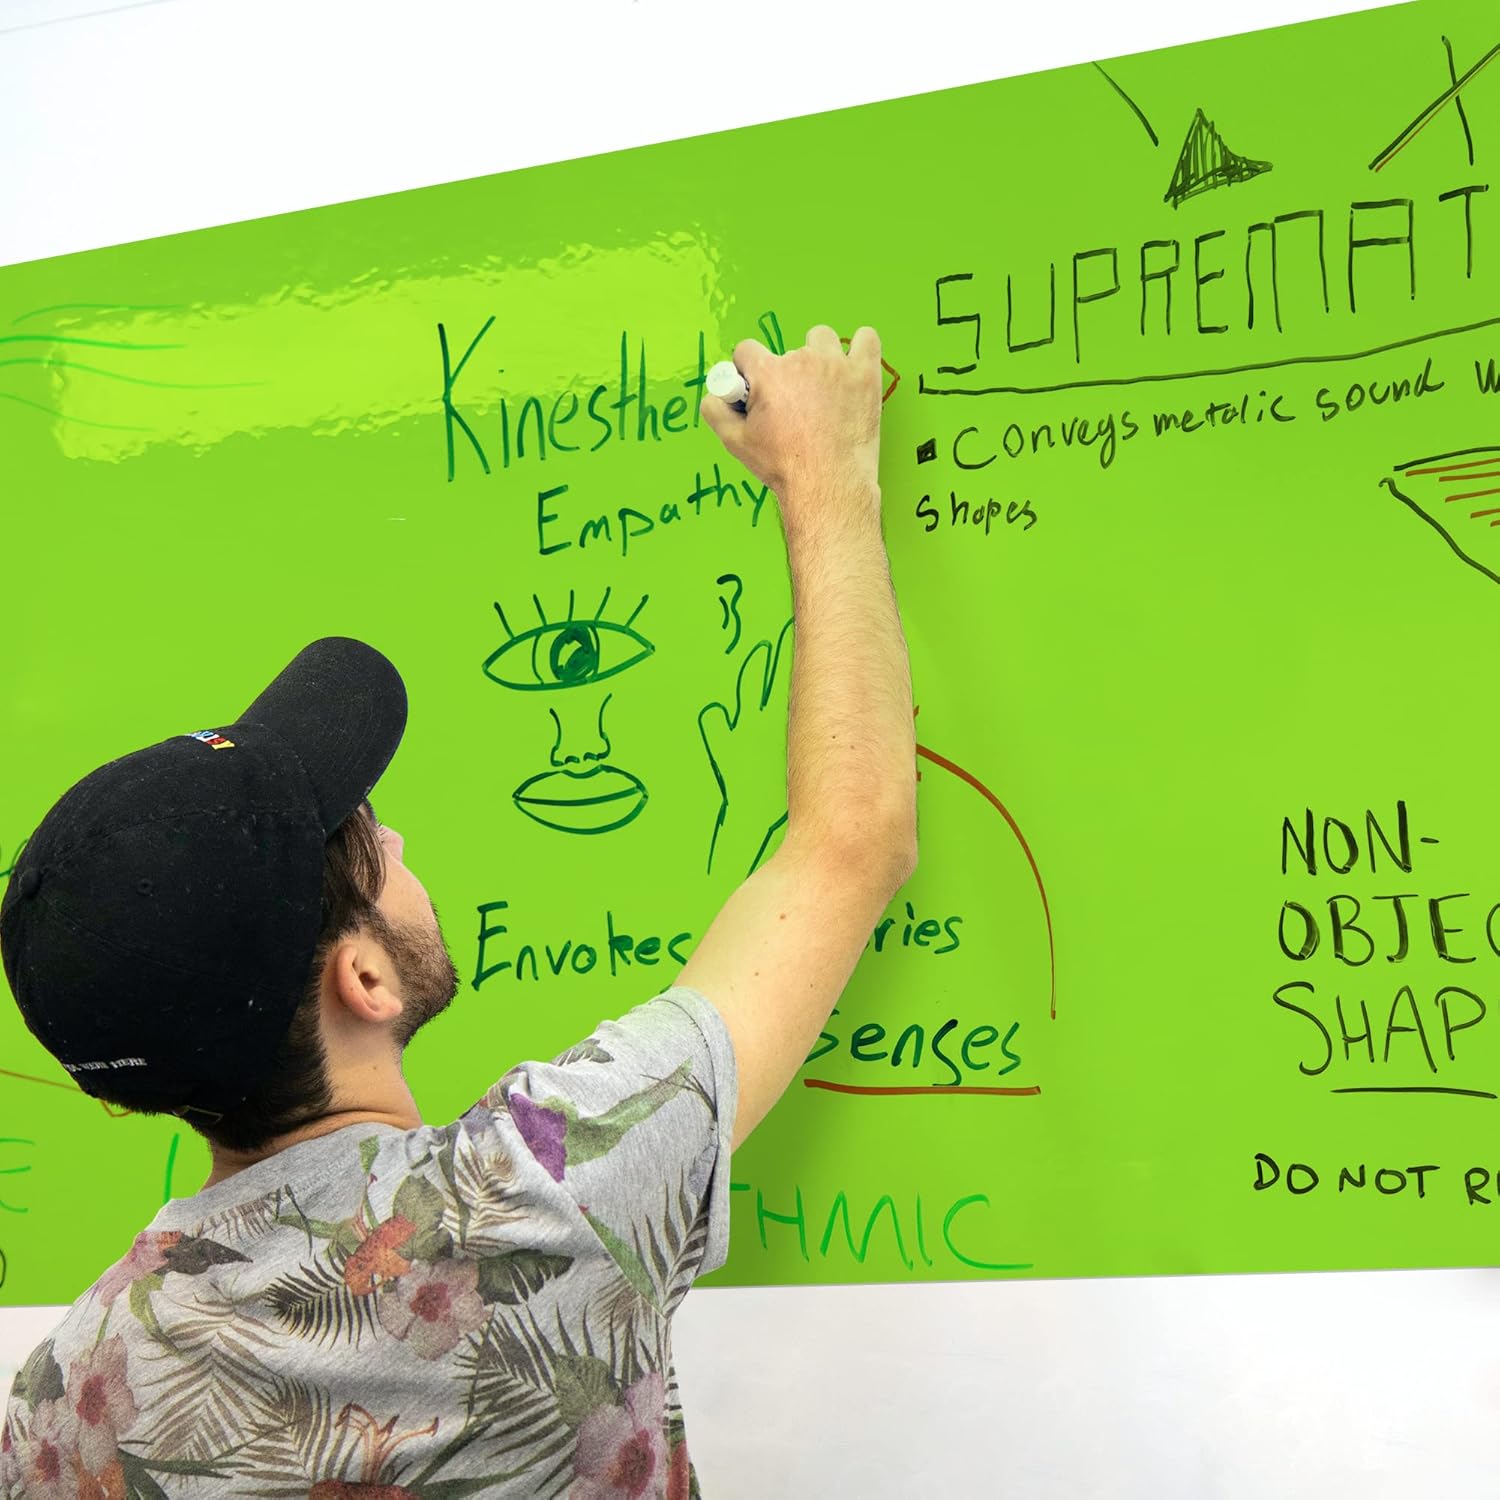 SUPREMAT
Kinesthet
Conveys metalic sound w
Empathy
shapes
NON-
Envokes ries
OBJEC
senses
SHAP
DO NOT RE
HMIC